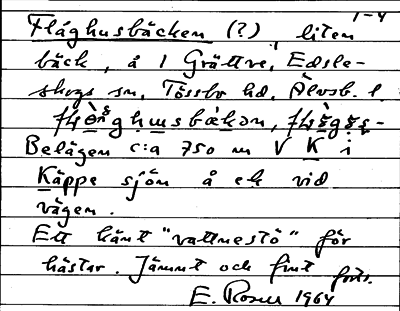 1-4
Fläghusbäcken (?), liten
bäck, å 1 Grättve, Edsle-
skogs sn, Tössbo hd, Älvsb. l.
Belägen c:a 750 m V K i
Käppe sjön å ek vid
vägen.
Ett känt "vattnestö" för
hästar. Jämnt och fint forts.
E. Rosell 1964